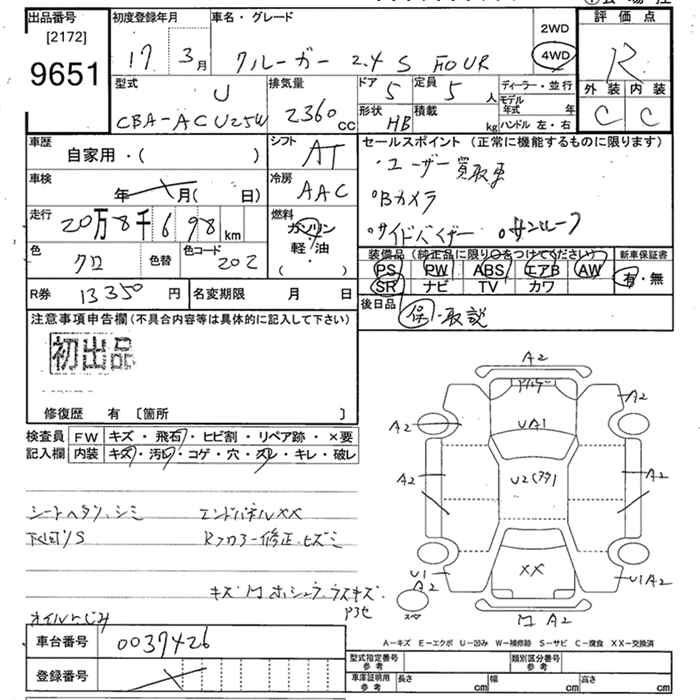 出品番号 初度登録年月 車名・グレード 評価点
[2172]
9651
17 3月 クルーガー 2.4 S FOUR 2WD 4WD R
型式 排気量 ドア 定員 ディーラー・並行 外装 内装
U
CBA-ACU25W 2360cc 5 5人 モデル年式 年 C C
形状 HB 積載 kg ハンドル 左・右
車歴 シフト セールスポイント (正常に機能するものに限ります)
自家用・( ) AT
・ユーザー買取車
車検 冷房
年 月( 日) AAC
・Bカメラ
走行 燃料
20万8千698km ガソリン
・サイドバイザー ・サンルーフ
軽・油
色 色替 色コード ( ・ )
クロ 202
装備品 (純正品に限り○をつけてください) 新車保証書
PS PW ABS エアB AW
SR ナビ TV カワ
有・無
R券 13350円 名変期限 月 日
後日品 保・取説
注意事項申告欄(不具合内容等は具体的に記入して下さい)
初出品
修復歴 有 〔箇所 〕
検査員 FW キズ・飛石・ヒビ割・リペア跡・×要
記入欄 内装 キズ・汚れ・コゲ・穴・スレ・キレ・破レ
シートヘタリ、シミ エンドパネルXX
下回りS Rフロアー修正・ヒズミ
オイルにじみ
A2
A2 A2
UA1
A2 A2
XX
U1 U1A2
A2
スペア
A2
A-キズ E-エクボ U-凹み W-補修跡 S-サビ C-腐食 XX-交換済
車台番号 0037426
登録番号
型式指定番号 参考 類別区分番号 参考
車庫証明用 参考 長さ cm 幅 cm 高さ cm